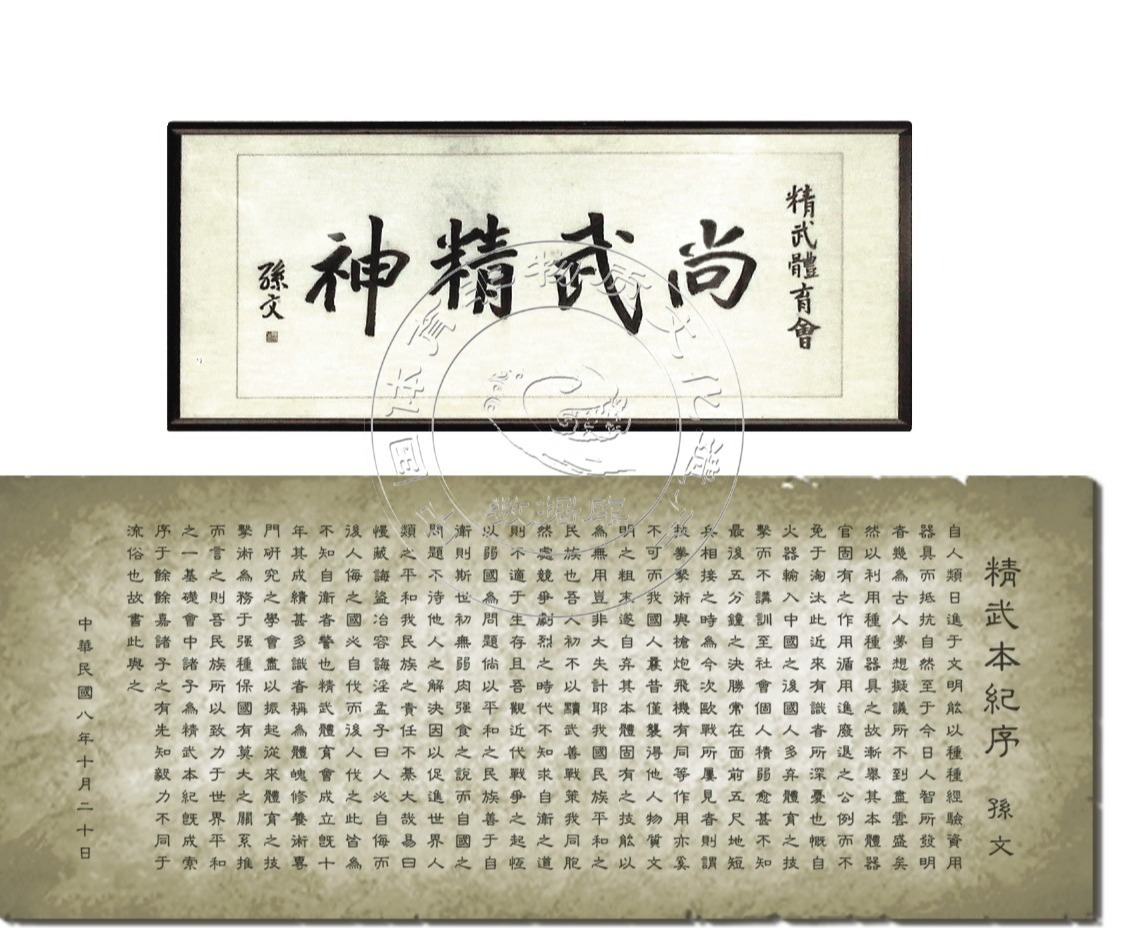 精武體育會
尚武精神
孫文
精武本紀序 孫文
自人類日進于文明能以種種經驗資用
器具而抵抗自然至于今日人智所發明
者幾為古人夢想擬議所不到盡雲盛矣
然以利用種種器具之故漸舉其本體器
官固有之作用循用進廢退之公例而不
免于淘汰此近來有識者所深憂也慨自
火器輸入中國之後國人多弃體育之技
擊而不講訓至社會個人積弱愈甚不知
最後五分鐘之決勝常在面前五尺地短
兵相接之時為今次歐戰所屢見者則謂
技拳擊術與槍炮飛機有同等作用亦奚
不可而我國人曩昔僅襲得他人物質文
明之粗末遂自弃其本體固有之技能以
為無用豈非大失計耶我國民族平和之
民族也吾人初不以黷武善戰策我同胞
然處競爭劇烈之時代不知求自衛之道
則不適于生存且吾觀近代戰爭之起恆
以弱國為問題倘以平和之民族善于自
衛則斯世初無弱肉强食之說而自國之
問題不待他人之解決因以促進世界人
類之平和我民族之責任不綦大哉易曰
慢藏誨盜冶容誨淫孟子曰人必自侮而
後人侮之國必自伐而後人伐之此皆為
不知自衛者警也精武體育會成立既十
年其成績甚多識者稱為體魄修養術專
門研究之學會盡以振起從來體育之技
擊術為務于强種保國有莫大之關系推
而言之則吾民族所以致力于世界平和
之一基礎會中諸子為精武本紀既成索
序于餘餘嘉諸子之有先知毅力不同于
流俗也故書此與之
中華民國八年十月二十日